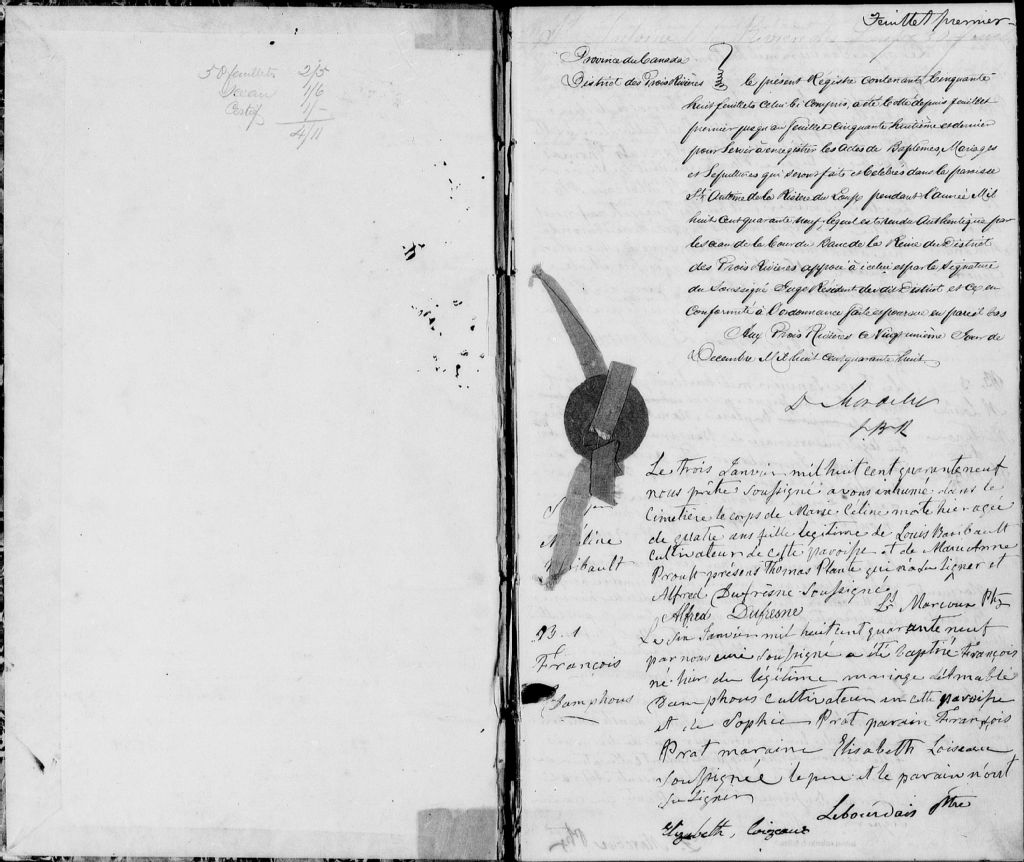 58 feuillets 2/5
Sceau 1/6
Certif. 1/-
4/11
Feuillet premier
Province du Canada
District des Trois Rivières
le présent Registre contenant Cinquante
huit feuillets celui ci compris, a été Cotté depuis feuillet
premier jusqu'au feuillet Cinquante huitième et dernier
pour servir à enregistrer les Actes de Baptêmes, Mariages
et Sépultures qui seront faits et Célébrés dans la paroisse
St. Antoine de la Rivière du Loup pendant l'année Mil
huit Cent quarante neuf, lequel est rendu Authentique par
le sceau de la Cour du Banc de la Reine du District
des Trois Rivières apposé à icelui et par la Signature
du Soussigné Juge Résident du dit District et ce en
Conformité à l'ordonnance faite et pourvue en pareil cas
Aux Trois Rivières ce Vingt unième Jour de
Decembre Mil huit Cent quarante huit
J.B.R
Le trois Janvier mil huit cent quarante neuf
nous prêtre soussigné avons inhumé dans le
Cimetière le corps de Marie Céline morte hier agée
de quatre ans fille légitime de Louis Baribault
cultivateur de cette paroisse et de Marie Anne
Proult présens Thomas Plante qui n'a su signer et
Alfred Dufresne soussigné
Alfred Dufresne Ls Marcoux Ptre
Céline
Baribault
B. 1
François
Bamphous
Le six Janvier mil huit cent quarante neuf
par nous curé soussigné a été baptisé François
né hier du légitime mariage d'Amable
Bamphous cultivateur en cette paroisse
et de Sophie Prat parain François
Prat maraine Elisabeth Loiseau
soussignée le pere et le parain n'ont
su signer
Lebourdais ptre
Elizabeth Loizeaux